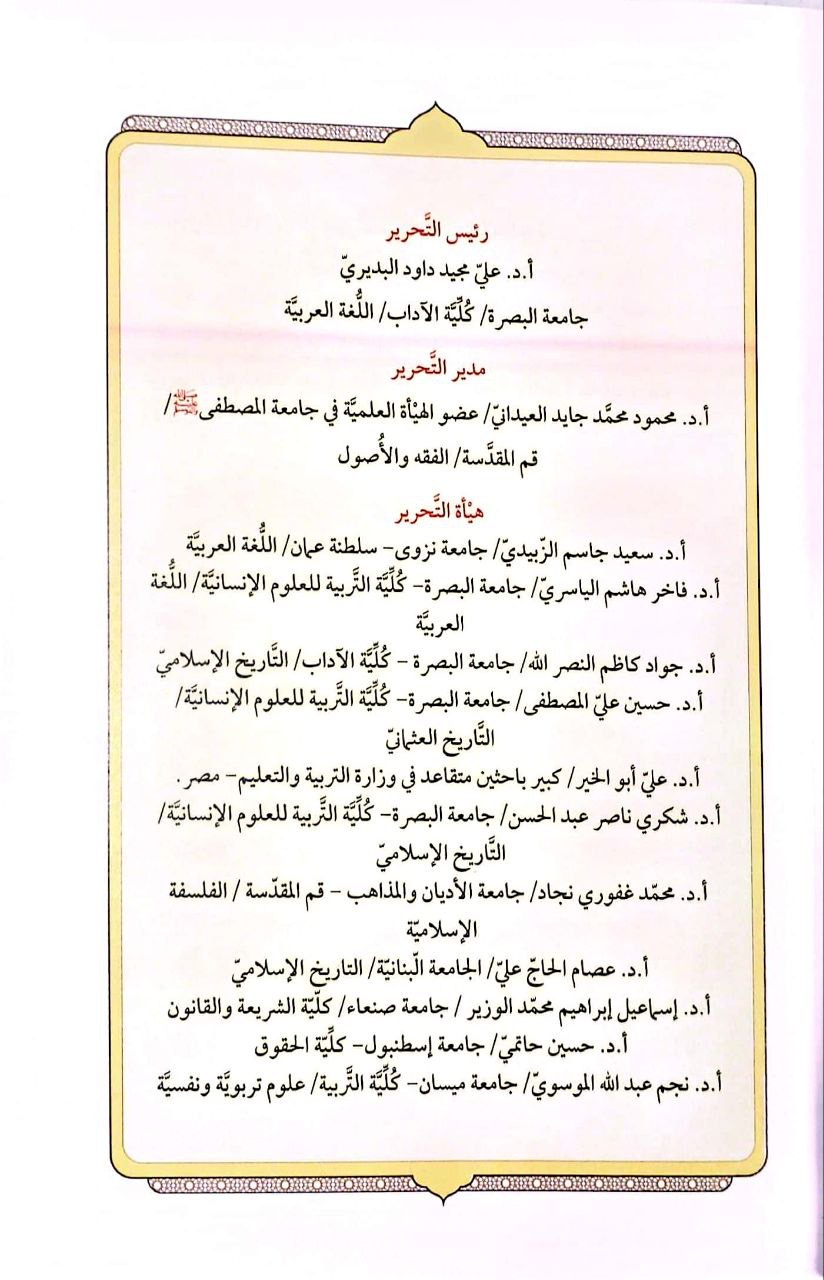 رئيس التَّحرير
أ.د. عليّ مجيد داود البديريّ
جامعة البصرة/ كُلِّيَّة الآداب/ اللُّغة العربيَّة
مدير التَّحرير
أ.د. محمود محمَّد جايد العيدانيّ/ عضو الهيْأة العلميَّة في جامعة المصطفى ﷺ/
قم المقدَّسة/ الفقه والأُصول
هيْأة التَّحرير
أ.د. سعيد جاسم الزّبيديّ/ جامعة نزوى– سلطنة عمان/ اللُّغة العربيَّة
أ.د. فاخر هاشم الياسريّ/ جامعة البصرة– كُلِّيَّة التَّربية للعلوم الإنسانيَّة/ اللُّغة
العربيَّة
أ.د. جواد كاظم النصر الله/ جامعة البصرة – كُلِّيَّة الآداب/ التَّاريخ الإسلاميّ
أ.د. حسين عليّ المصطفى/ جامعة البصرة– كُلِّيَّة التَّربية للعلوم الإنسانيَّة/
التَّاريخ العثمانيّ
أ.د. عليّ أبو الخير/ كبير باحثين متقاعد في وزارة التربية والتعليم– مصر.
أ.د. شكري ناصر عبد الحسن/ جامعة البصرة– كُلِّيَّة التَّربية للعلوم الإنسانيَّة/
التَّاريخ الإسلاميّ
أ.د. محمّد غفوري نجاد/ جامعة الأديان والمذاهب – قم المقدّسة / الفلسفة
الإسلاميّة
أ.د. عصام الحاجّ عليّ/ الجامعة الّبنانيّة/ التاريخ الإسلاميّ
أ.د. إسماعيل إبراهيم محمّد الوزير / جامعة صنعاء/ كلّيّة الشريعة والقانون
أ.د. حسين حاتميّ/ جامعة إسطنبول– كلِّيّة الحقوق
أ.د. نجم عبد الله الموسويّ/ جامعة ميسان– كُلِّيَّة التَّربية/ علوم تربويَّة ونفسيَّة